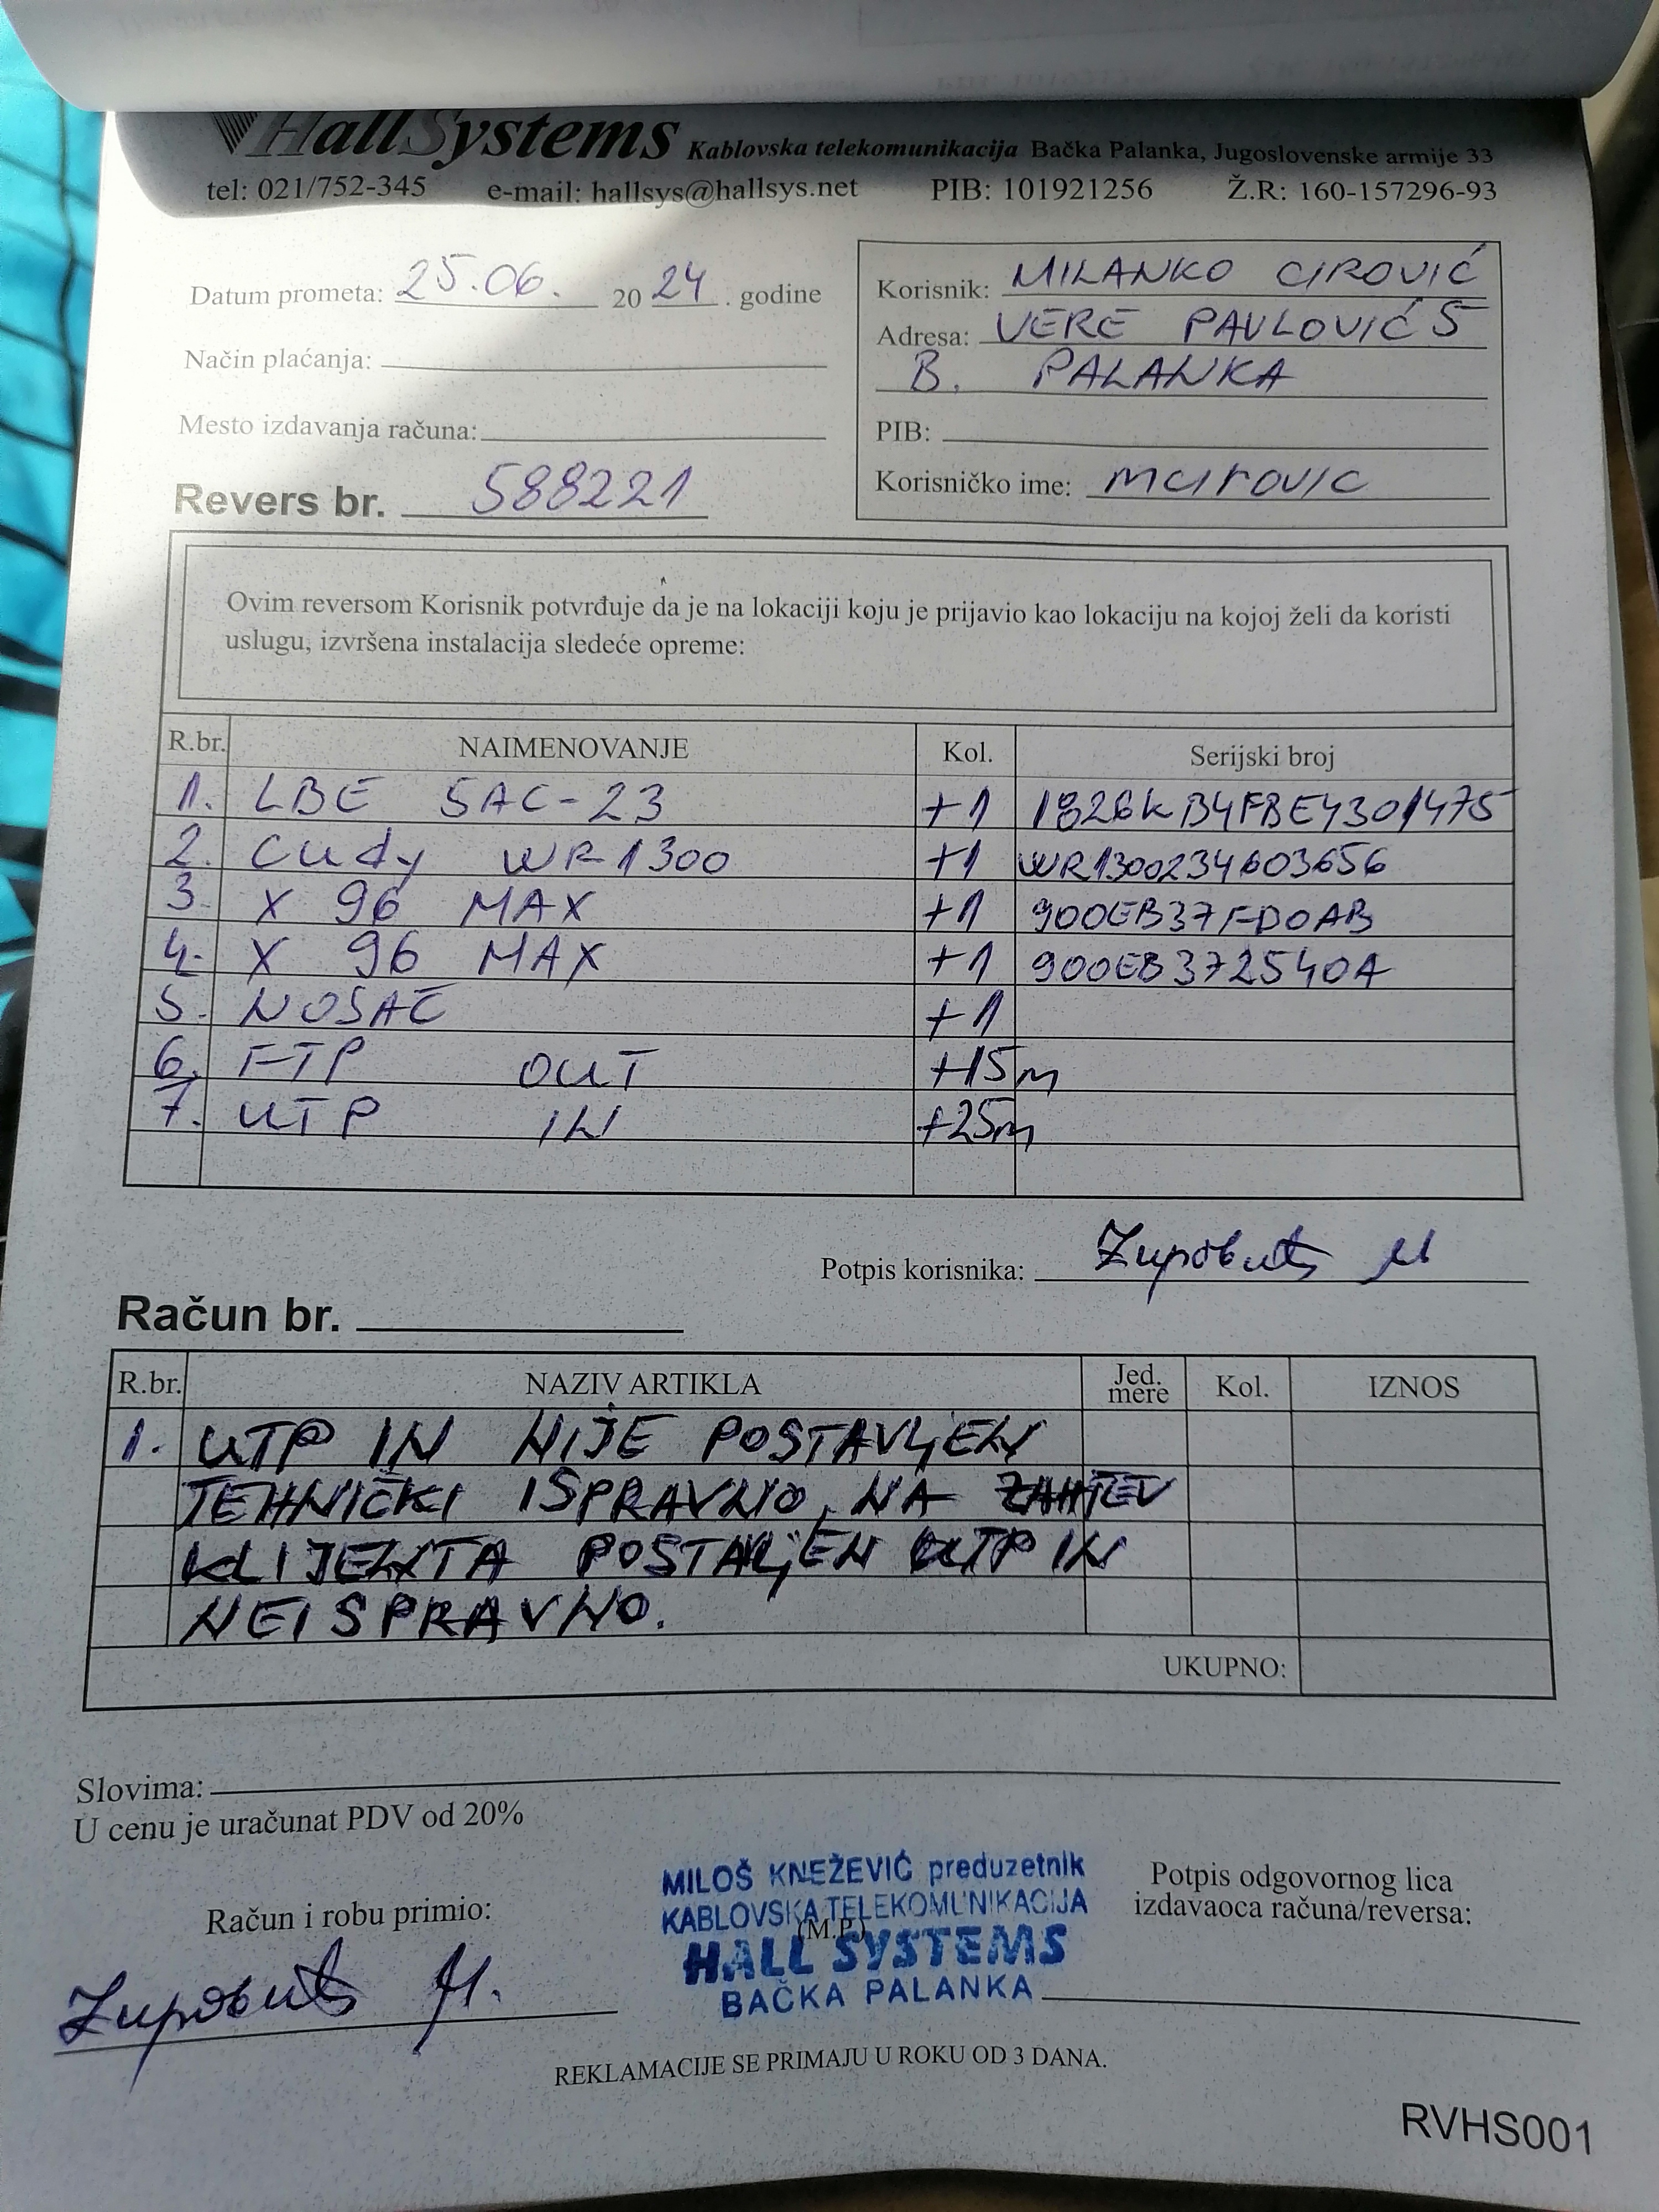 HallSystems Kablovska telekomunikacija Bačka Palanka, Jugoslovenske armije 33
tel: 021/752-345 e-mail: hallsys@hallsys.net PIB: 101921256 Ž.R: 160-157296-93
Datum prometa: 25.06. 2024. godine
Način plaćanja:
Mesto izdavanja računa:
Revers br. 588221
Korisnik: MILANKO CIROVIĆ
Adresa: VERE PAVLOVIĆ 5
B. PALANKA
PIB:
Korisničko ime: mcirovic
Ovim reversom Korisnik potvrđuje da je na lokaciji koju je prijavio kao lokaciju na kojoj želi da koristi
uslugu, izvršena instalacija sledeće opreme:
R.br. NAIMENOVANJE Kol. Serijski broj
1. LBE 5AC-23 +1 1826KB4FBE4301475
2. Cudy WR1300 +1 WR1300234603656
3. X 96 MAX +1 900EB37FD0AB
4. X 96 MAX +1 900EB372540A
5. NOSAČ +1
6. FTP OUT +15m
7. UTP IN +25m
Potpis korisnika:
Račun br.
R.br. NAZIV ARTIKLA Jed. mere Kol. IZNOS
1. UTP IN NIJE POSTAVLJEN
TEHNIČKI ISPRAVNO, NA ZAHTEV
KLIJENTA POSTAVLJEN UTP IN
NEISPRAVNO.
UKUPNO:
Slovima:
U cenu je uračunat PDV od 20%
Račun i robu primio:
MILOŠ KNEŽEVIĆ preduzetnik
KABLOVSKA TELEKOMUNIKACIJA
(M.P.)
HALL SYSTEMS
BAČKA PALANKA
Potpis odgovornog lica
izdavaoca računa/reversa:
REKLAMACIJE SE PRIMAJU U ROKU OD 3 DANA.
RVHS001